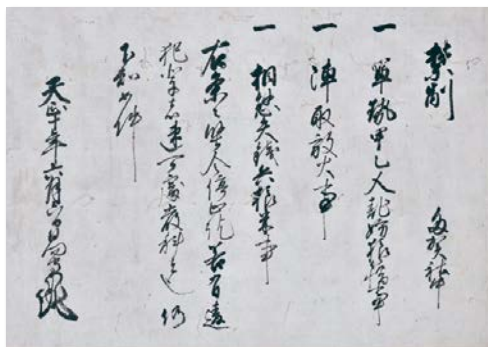 禁制 多賀社
一 軍勢甲乙人乱妨狼藉事
一 陣取放火事
一 相懸矢銭兵粮米事
右条々堅令停止訖若有違
犯輩者速可處嚴科者也仍
下知如件
天正 年六月六日